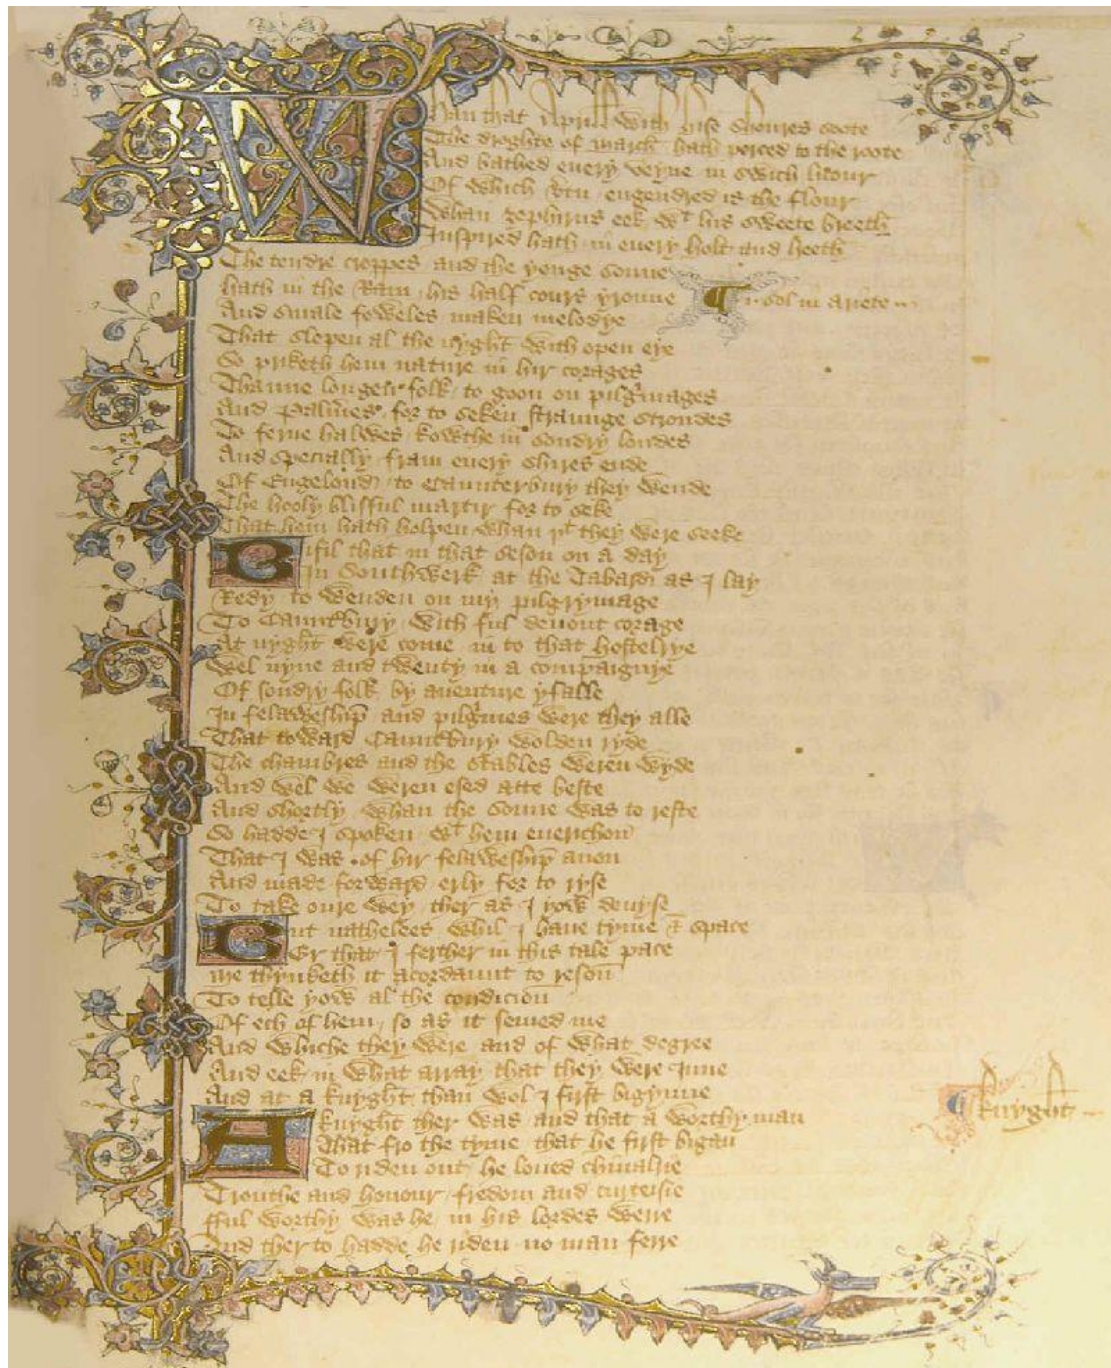 Whan that Aprill with hise shoures soote
The droghte of march hath perced to the roote
And bathed every veyne in swich licour
Of which vertu engendred is the flour
Whan zephirus eek wt his sweete breeth
Inspired hath in euery holt and heeth
The tendre croppes and the yonge sonne
hath in the Ram his half cours yronne
¶ in sol in ariete
And smale foweles maken melodye
That slepen al the nyght with open eye
So priketh hem nature in hir corages
Thanne longen folk to goon on pilgrimages
And Palmeres for to seken straunge strondes
To ferne halwes kowthe in sondry londes
And specially fram euery shires ende
Of Engelond to Caunterbury they wende
The hooly blisful martir for to seke
That hem hath holpen whan þt they were seeke
Bifil that in that seson on a day
In Southwerk at the Tabard as I lay
Redy to wenden on my pilgrymage
To Caunterbury with ful deuout corage
At nyght were come in to that hostelrye
Wel nyne and twenty in a compaignye
Of sondry folk by auenture yfalle
In felaweshipe and pilgrimes were they alle
That toward Caunterbury wolden ryde
The chambres and the stables weren wyde
And wel we weren esed atte beste
And shortly whan the sonne was to reste
So hadde I spoken wt hem euerichon
That I was of hir felaweshipe anon
And made forward erly for to ryse
To take oure wey ther as I yow deuyse
But nathelees whil I haue tyme & space
Er that I ferther in this tale pace
Me thynketh it acordaunt to reson
To telle yow al the condicion
Of ech of hem so as it semed me
And whiche they were and of what degree
And eek in what array that they were Inne
And at a knyght than wol I first bigynne
A knyght ther was and that a worthy man
That fro the tyme that he first bigan
To riden out he loued chiualrie
Trouthe and honour fredom and curteisie
fful worthy was he in his lordes werre
And ther to hadde he riden no man ferre
¶ Knyght